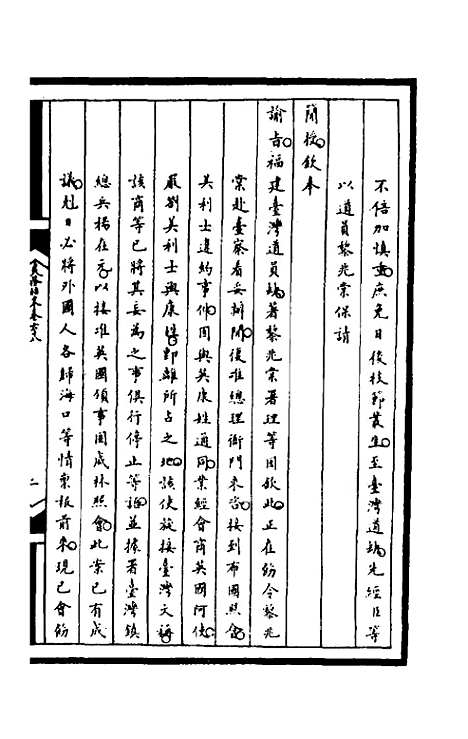 不倍加慎重庶免日後枝節叢生至臺灣道缺先經臣等
以道員黎兆棠保請
簡授欽奉
諭旨福建臺灣道員缺著黎兆棠署理等因欽此正在飭令黎兆
棠赴臺察看妥辦間復准總理衙門來咨接到布國照會
美利士違約事件因與英康姓通同業經會商英國阿使
嚴劄美利士與康姓即離所占之地該使旋接臺灣文稱
該商等已將其妄為之事俱行停止等語並據署臺灣鎮
總兵楊在元以接准英國領事固威林照會此案已有成
議赴日必將外國人各歸海口等情稟報前來現已會飭